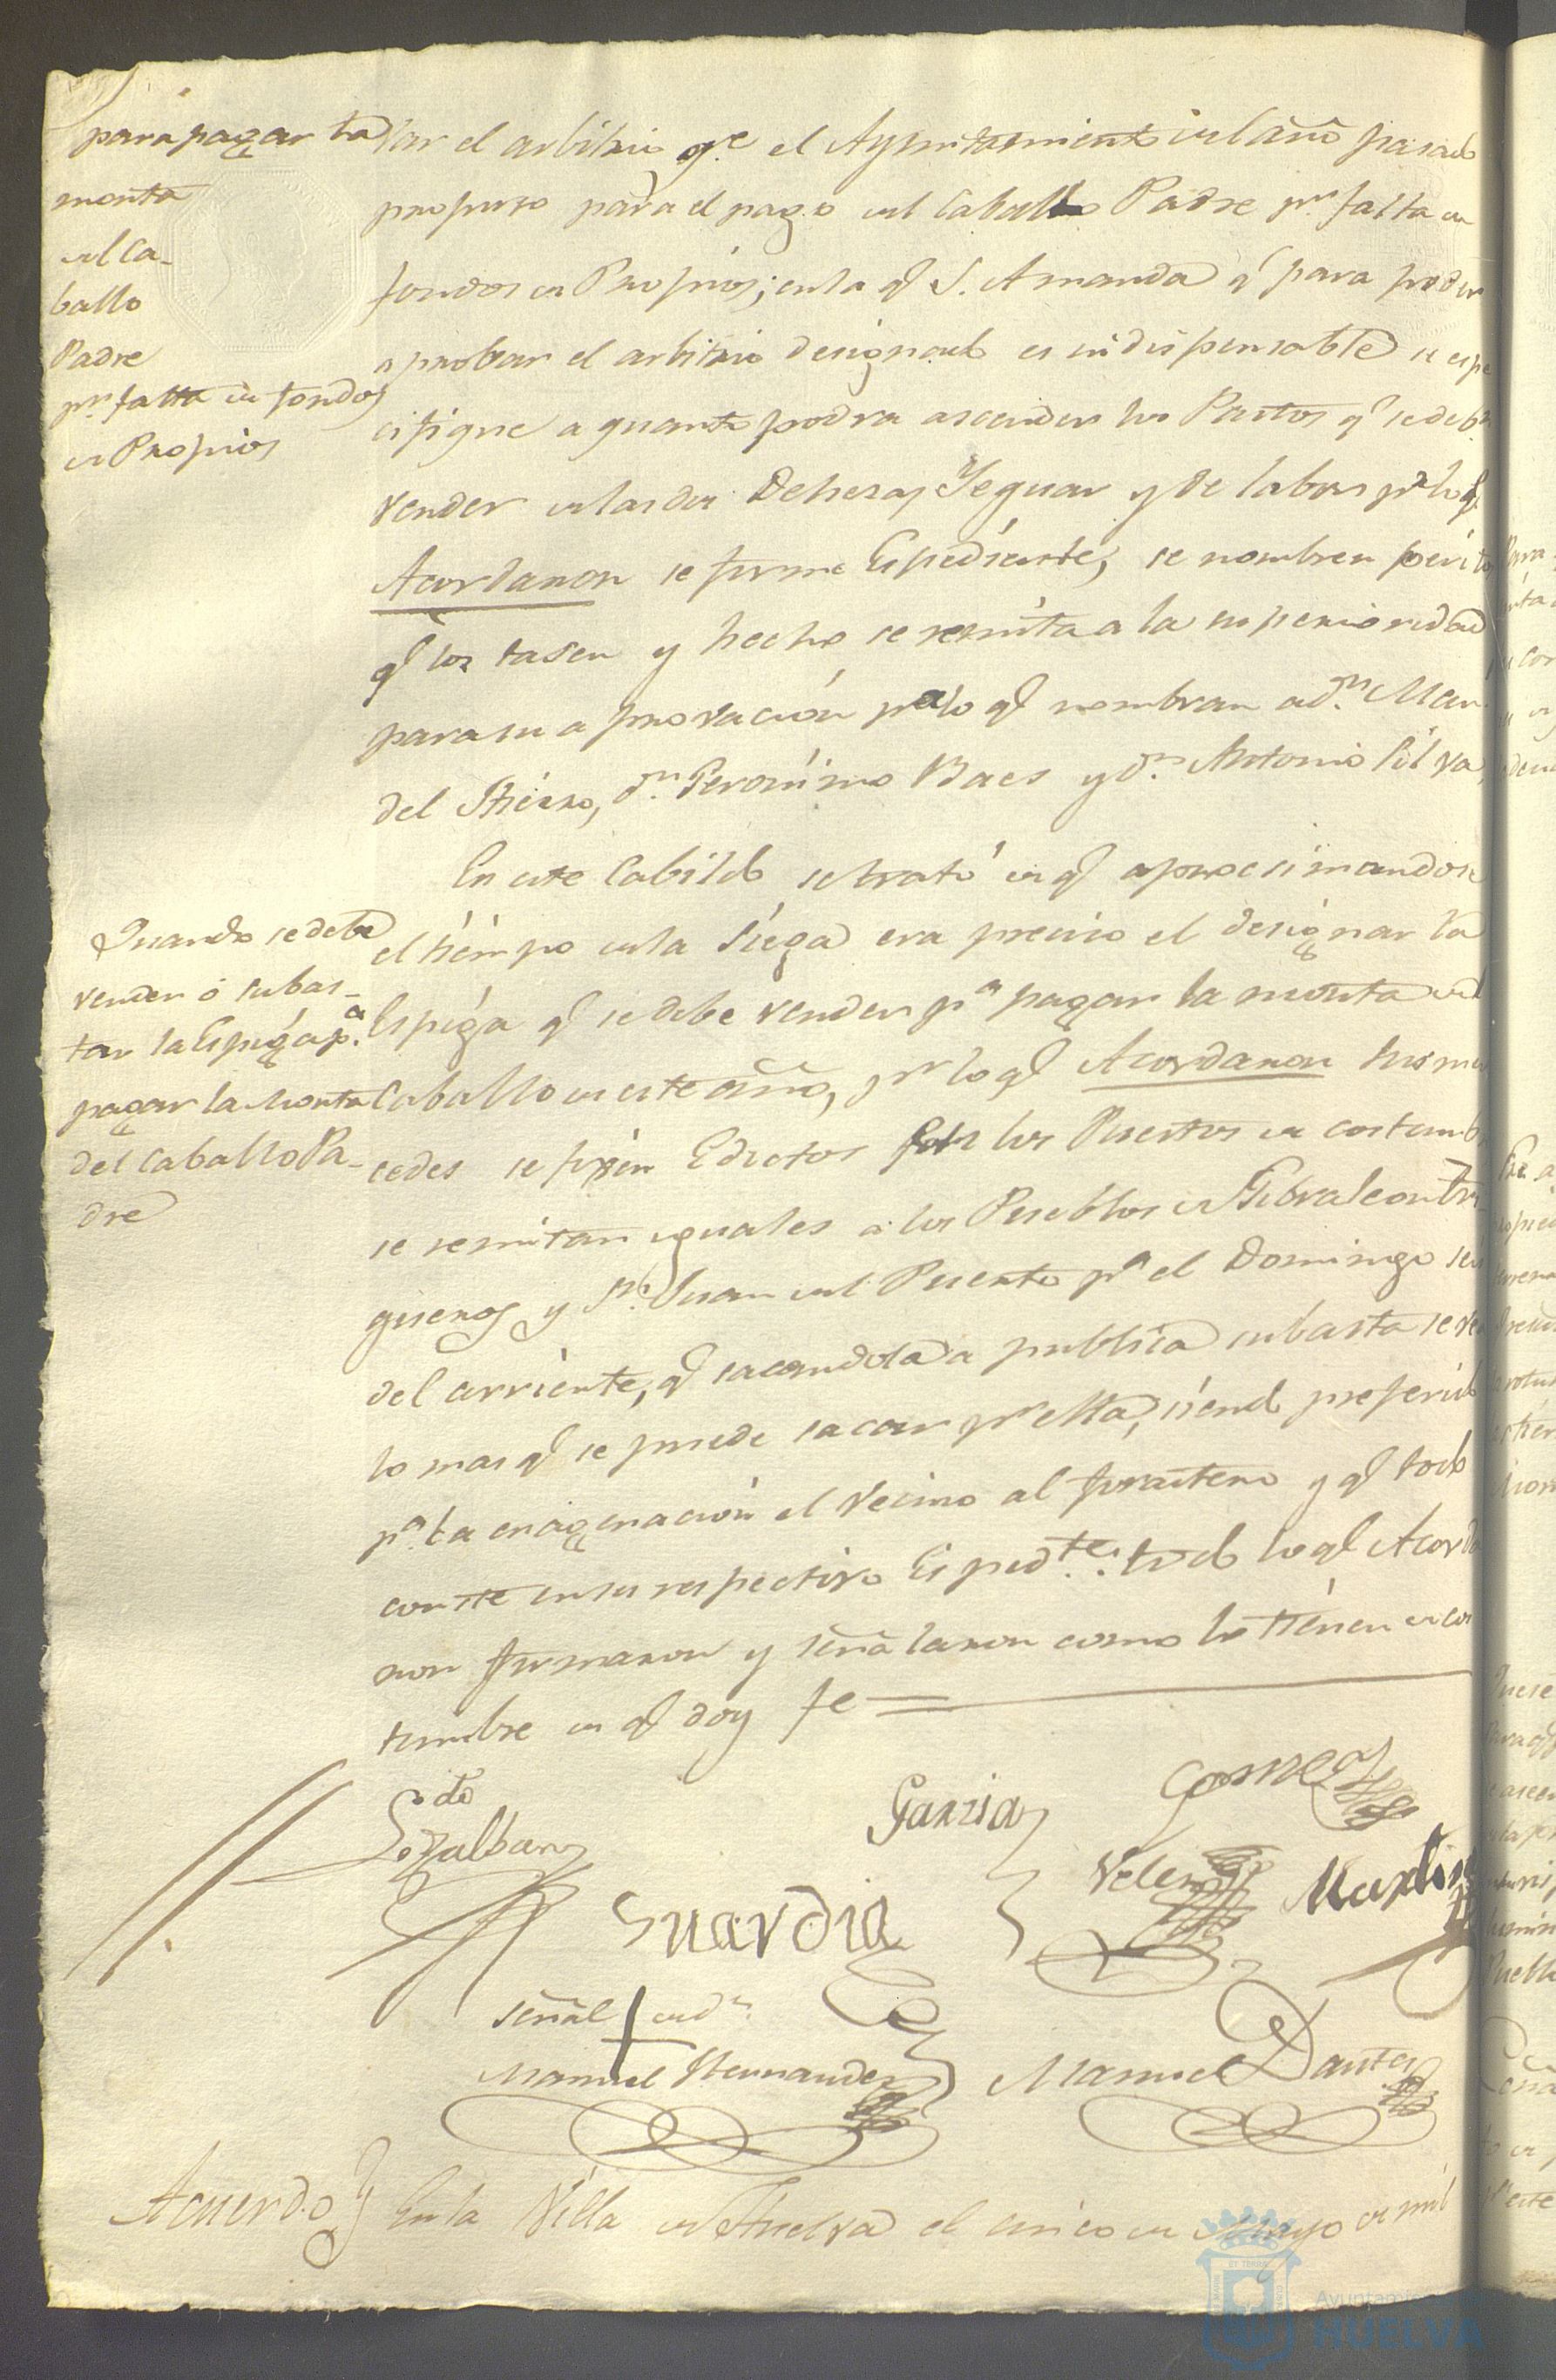 para pagar la
monta
del Ca-
ballo
Padre
pr. falta de fondos
de Propios
lar el arbitrio qe. el Ayuntamiento en el año pasado
propuso para el pago del Caballo Padre pr. falta de
fondos de Propios; en la q S. Amanda q para poder
aprobar el arbitrio designado es indispensable se espe
cifique a quanto podra ascender los Pastos q se debn
vender en las dos Dehesas Yeguar y de labor pr lo q
Acordaron se forme Espediente, se nombren perito
q los tasen y hecho se remita a la superioridad
para su aprovación pa lo q nombran a dn. Man.
del Hierro, dn. Geronimo Baes y dn. Antonio Silva,
En este Cabildo se trató de q aprocsimandose
el tiempo de la Siega era preciso el designar la
Espiga q se debe vender pa pagar la monta del
Caballo en este año, pr lo q Acordaron sus mer
cedes se fixen Edictos en los Puestos de costumb
se remitan iguales a los Pueblos de Gibraleon Tri
gueros y Sn. Juan del Puerto pa el Domingo seis
del corriente, q sacandola a publica subasta se ve
lo mas q se puede sacar pr ella, siendo preferido
pa. la enagenación el Vecino al forastero y q todo
conste en su respectivo Espedte.: todo lo q Acorda
ron firmaron y señalaron como lo tienen de cos
tumbre de q doy fe
Quando se debe
vender ó subas-
tar la Espiga pa.
pagar la Monta
del Caballo Pa-
dre
Garzia
Gomez
Guardia
Velez
señal de dn.
Manuel Hernandez
Manuel
Acuerdo
En la Villa de Huelva el cinco de Mayo de mil
Ayuntamiento de
HUELVA